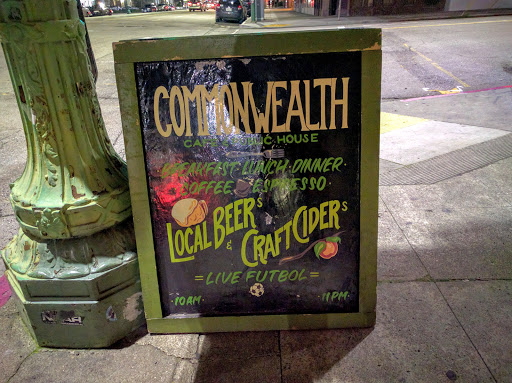 COMMONWEALTH
CAFE & PUBLIC HOUSE
BREAKFAST · LUNCH · DINNER ·
COFFEE · ESPRESSO ·
LOCAL BEERS
& CRAFT CIDERS
= LIVE FUTBOL =
· 10AM · · 11PM ·